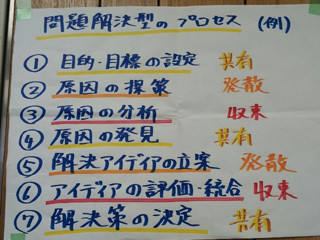 問題解決型のプロセス (例)
① 目的・目標の設定 共有
② 原因の探策 発散
③ 原因の分析 収束
④ 原因の発見 共有
⑤ 解決アイディアの立案 発散
⑥ アイディアの評価・統合 収束
⑦ 解決策の決定 共有